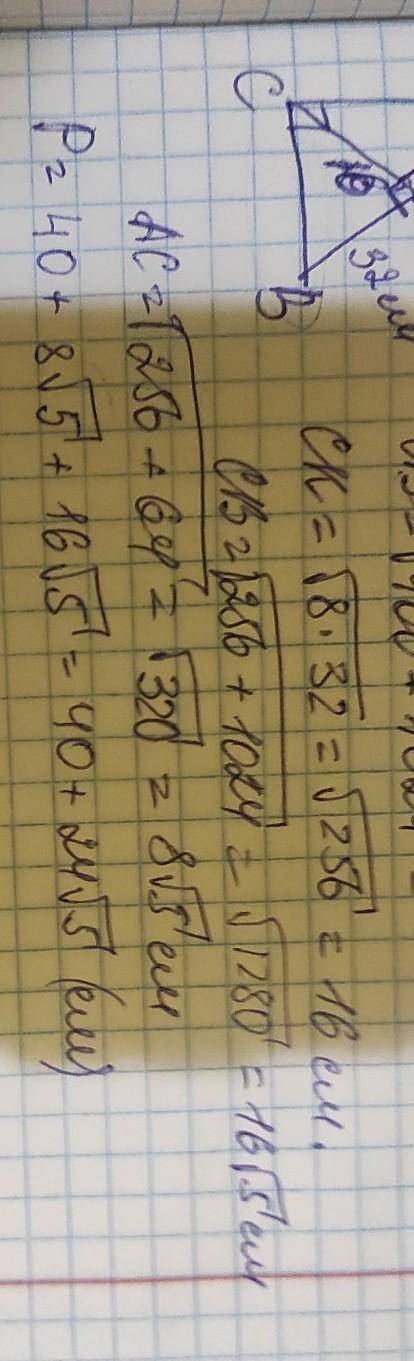 C
B
16
32 см
CK = √8·32 = √256 = 16 см.
CB = √256 + 1024 = √1280 = 16√5 см
AC = √256 + 64 = √320 = 8√5 см
P = 40 + 8√5 + 16√5 = 40 + 24√5 (см)